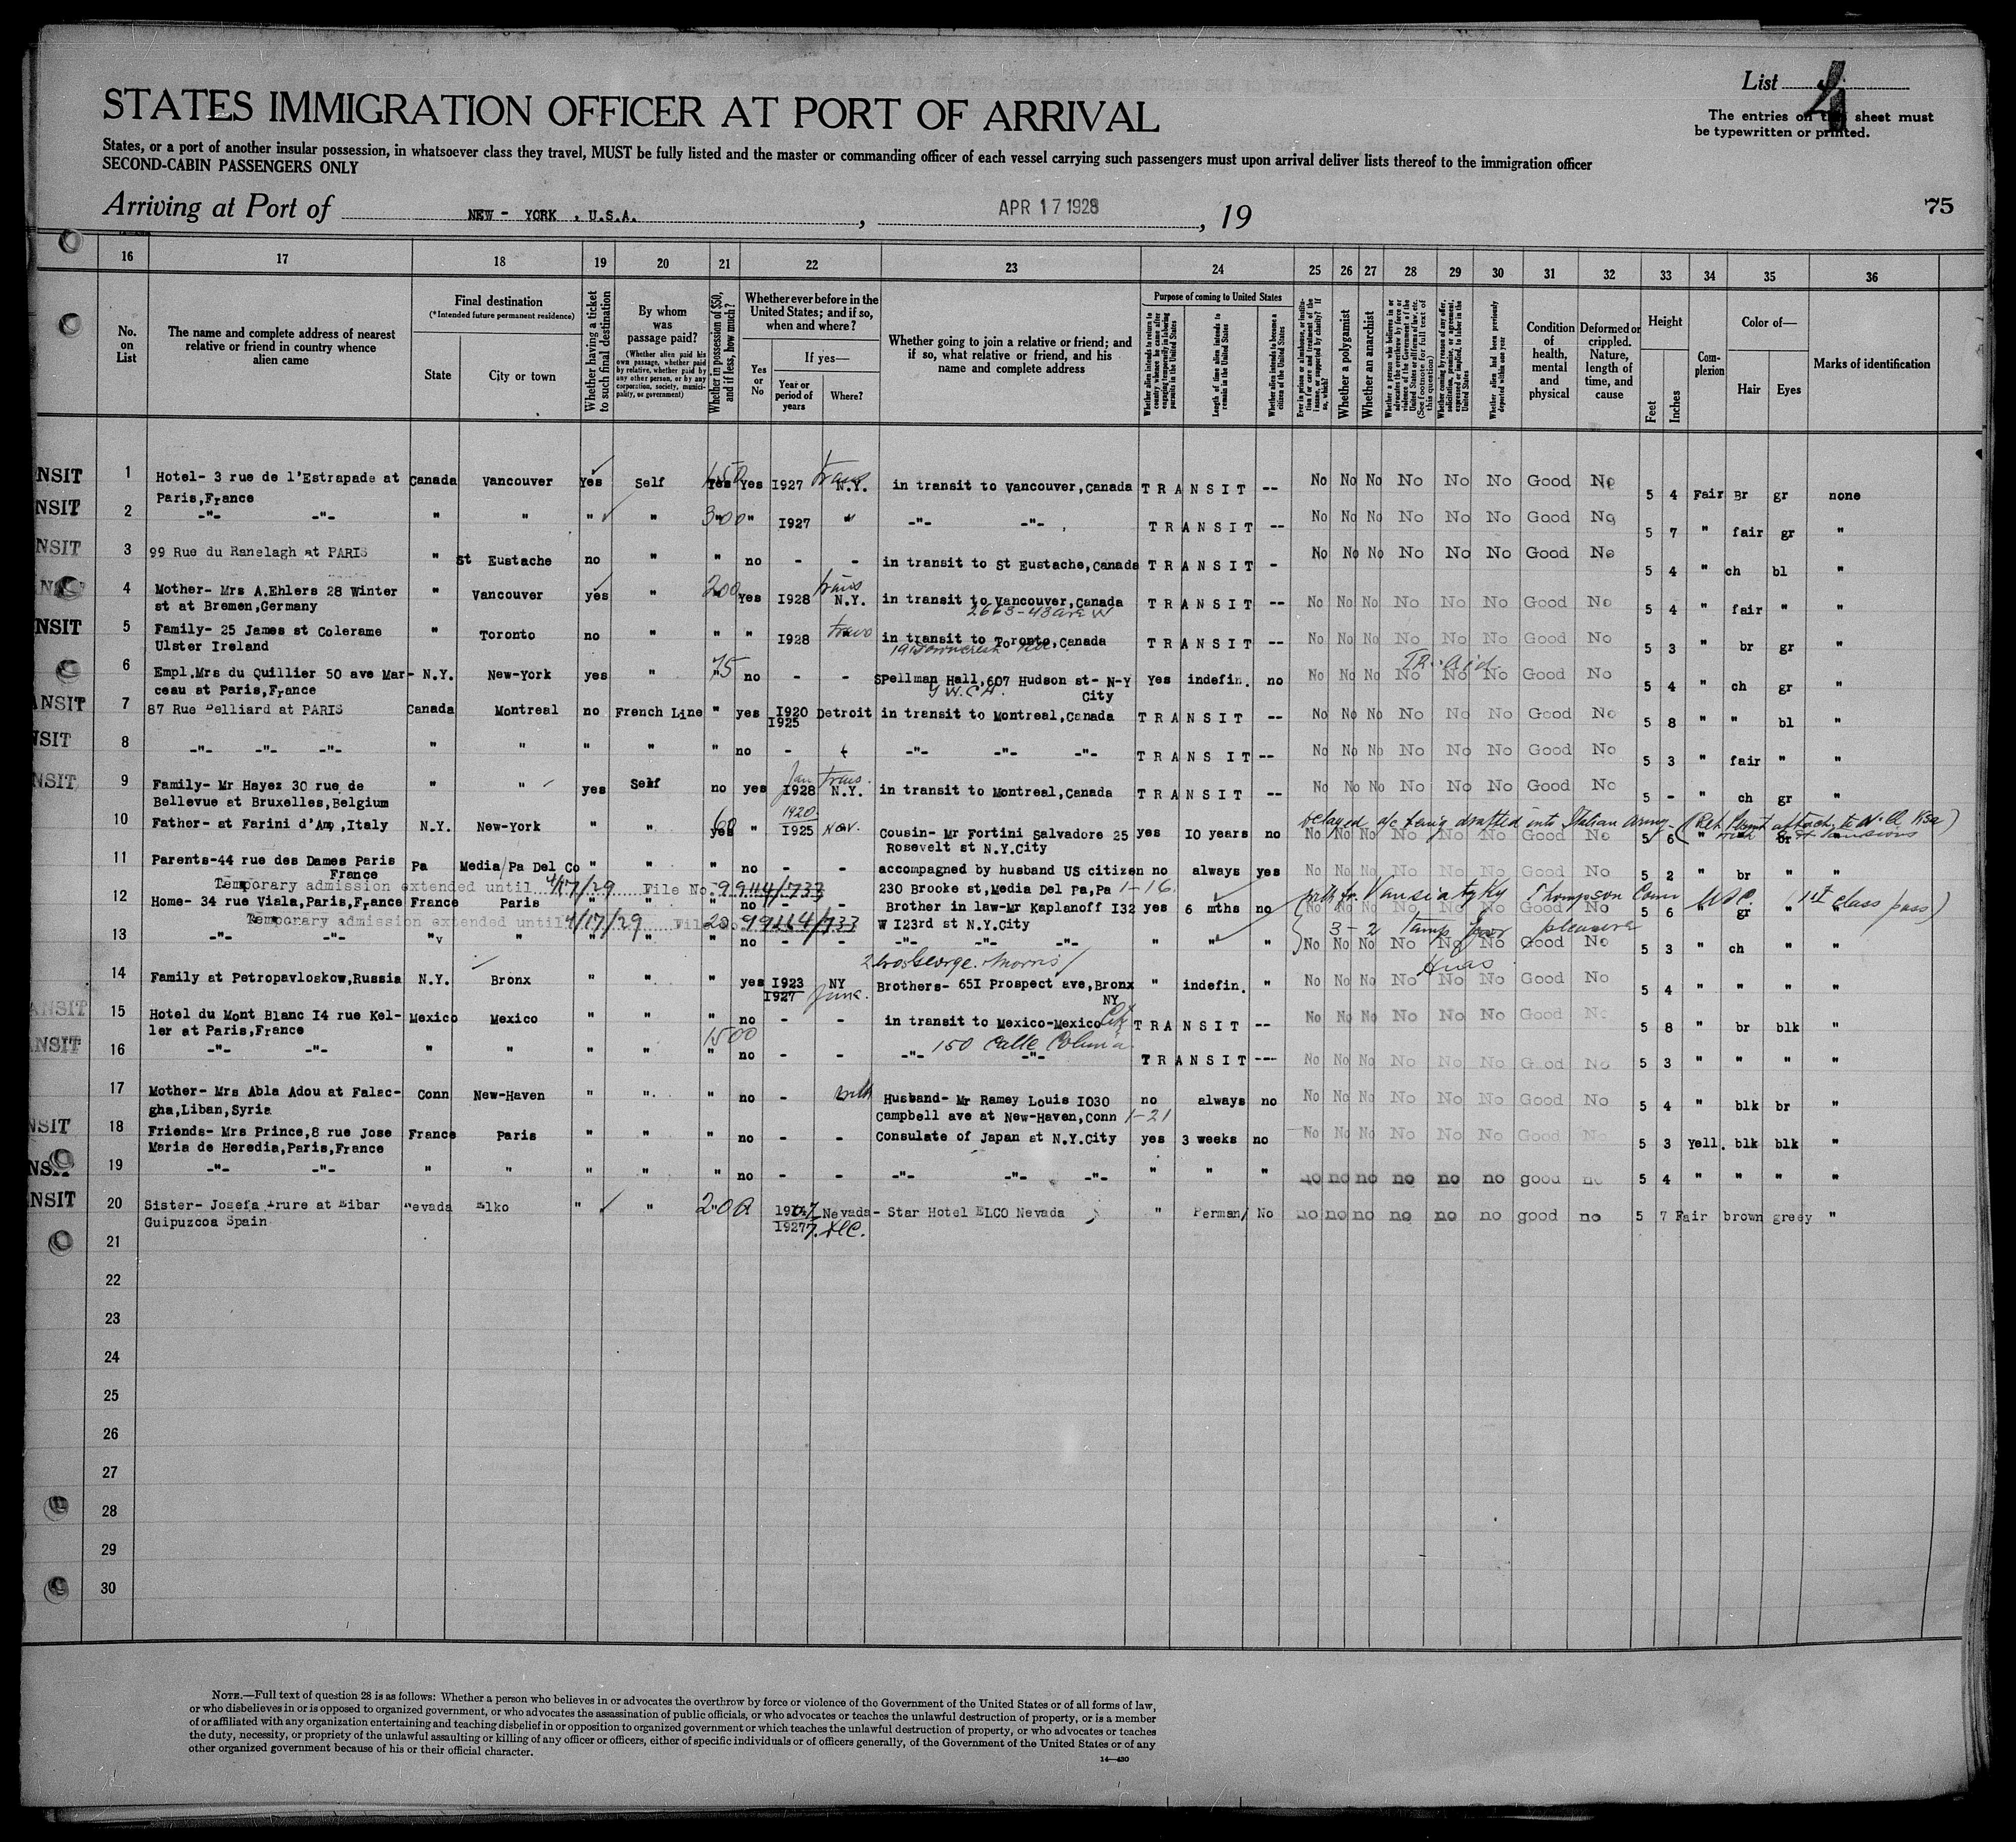 List 4
The entries on this sheet must
be typewritten or printed.
STATES IMMIGRATION OFFICER AT PORT OF ARRIVAL
States, or a port of another insular possession, in whatsoever class they travel, MUST be fully listed and the master or commanding officer of each vessel carrying such passengers must upon arrival deliver lists thereof to the immigration officer
SECOND-CABIN PASSENGERS ONLY
Arriving at Port of NEW - YORK , U.S.A. , APR 17 1928 , 19
75
16 17 18 19 20 21 22 23 24 25 26 27 28 29 30 31 32 33 34 35 36
No. on List
The name and complete address of nearest relative or friend in country whence alien came
Final destination
(*Intended future permanent residence)
State
City or town
Whether having a ticket to such final destination
By whom was passage paid?
(Whether alien paid his own passage, whether paid by relative, whether paid by any other person, or by any corporation, society, municipality, or government)
Whether in possession of $50, and if less, how much?
Whether ever before in the United States; and if so, when and where?
Yes or No
If yes—
Year or period of years
Where?
Whether going to join a relative or friend; and if so, what relative or friend, and his name and complete address
Purpose of coming to United States
Whether alien intends to return to country whence he came after engaging temporarily in laboring pursuits in the United States
Length of time alien intends to remain in the United States
Whether alien intends to become a citizen of the United States
Whether a polygamist
Whether an anarchist
Whether alien had been previously deported within one year
Condition of health, mental and physical
Deformed or crippled. Nature, length of time, and cause
Height
Feet
Inches
Complexion
Color of—
Hair
Eyes
Marks of identification
NSIT 1 Hotel- 3 rue de l'Estrapade at Canada Vancouver Yes Self 150 Yes Yes I927 trans N.Y. in transit to Vancouver,Canada TRANSIT -- No No No No No No Good No 5 4 Fair Br gr none
Paris,France
NSIT 2 -"- -"- " " " " 300 " I927 " -"- -"- TRANSIT -- No No No No No No Good No 5 7 " fair gr "
NSIT 3 99 Rue du Ranelagh at PARIS " St Eustache no " " no - - in transit to St Eustache,Canada TRANSIT - No No No No No No Good No 5 4 " ch bl "
4 Mother- Mrs A.Ehlers 28 Winter " Vancouver yes " 200 Yes I928 trans N.Y. in transit to Vancouver,Canada TRANSIT -- No No No No No No Good No 5 4 " fair " "
st at Bremen,Germany 2663-43 ave W
NSIT 5 Family- 25 James st Colerame " Toronto no " " " I928 trans in transit to Toronto,Canada TRANSIT -- No No No No No No Good No 5 3 " br gr "
Ulster Ireland
6 Empl.Mrs du Quillier 50 ave Mar- N.Y. New-York yes " 75 no - - Spellman Hall,607 Hudson st- N-Y City Yes indefin. no No No No No No No Good No 5 4 " ch gr "
ceau at Paris,France Y W.C.A.
ANSIT 7 87 Rue Belliard at PARIS Canada Montreal no French Line " yes I920 I925 Detroit in transit to Montreal,Canada TRANSIT -- No No No No No No Good No 5 8 " " bl "
NSIT 8 -"- -"- -"- " " " " " no - - -"- -"- -"- TRANSIT -- No No No No No No Good No 5 3 " fair " "
NSIT 9 Family- Mr Hayez 30 rue de " " yes Self no yes Jan I928 trans. N.Y. in transit to Montreal,Canada TRANSIT -- No No No No No No Good No 5 - " ch gr "
Bellevue at Bruxelles,Belgium
10 Father- at Farini d'Amo,Italy N.Y. New-York " " 60 yes " 1920 I925 Nov. Cousin- Mr Fortini Salvadore 25 yes I0 years no No No No No No No Good No 5 6 " br "
Rosevelt st N.Y.City
delayed a/c being drafted into Italian army
11 Parents-44 rue des Dames Paris Pa Media/Pa Del Co " " " no - - accompagned by husband US citizen no always yes No No No No No No Good No 5 2 " br " "
France 230 Brooke st,Media Del Pa,Pa 1-16
Temporary admission extended until 4/17/29 File No. 99114/733
12 Home- 34 rue Viala,Paris,France France Paris " " " no - - Brother in law-Mr Kaplanoff I32 yes 6 mths no No No No No No No Good No 5 6 " gr " "
W I23rd st N.Y.City
Thompson Conn 1st class pass)
Temporary admission extended until 4/17/29 File No. 99114/733
13 -"- -"- " " " " " no - - -"- -"- -"- " " " No No No No No No Good No 5 3 " ch " "
3-2 temp for pleasure
2 bros George. Morris
14 Family at Petropavloskow,Russia N.Y. Bronx " " " yes I923 I927 NY June. Brothers- 65I Prospect ave,Bronx NY " indefin. " No No No No No No Good No 5 4 " " " "
Hias
ANSIT 15 Hotel du Mont Blanc I4 rue Kel- Mexico Mexico " " " no - - in transit to Mexico-Mexico City TRANSIT -- No No No No No No Good No 5 8 " br blk "
ler at Paris,France 1500
ANSIT 16 -"- -"- " " " " " no - - -"- 150 Calle Colima -"- TRANSIT --- No No No No No No Good No 5 3 " " " "
17 Mother- Mrs Abla Adou at Falac- Conn New-Haven " " " no - Husband- Mr Ramey Louis I030 no always no No No No No No No Good No 5 4 " blk br "
gha,Liban,Syria Campbell ave at New-Haven,Conn 1-21
NSIT 18 Friends- Mrs Prince,8 rue Jose France Paris " " " no - - Consulate of Japan at N.Y.City yes 3 weeks no No No No No No No Good No 5 3 Yell. blk blk "
Maria de Heredia,Paris,France
19 -"- -"- " " " " " no - - -"- -"- -"- " " " no no no no no no good no 5 4 " " " "
NSIT 20 Sister- Josefa Irure at Eibar Nevada Elko " " 200 1927 Nevada - Star Hotel ELCO Nevada " Perman/ No no no no no no no good no 5 7 Fair brown greey "
Guipuzcoa Spain Dec.
21
22
23
24
25
26
27
28
29
30
NOTE.—Full text of question 28 is as follows: Whether a person who believes in or advocates the overthrow by force or violence of the Government of the United States or of all forms of law,
or who disbelieves in or is opposed to organized government, or who advocates the assassination of public officials, or who advocates or teaches the unlawful destruction of property, or is a member
of or affiliated with any organization entertaining and teaching disbelief in or opposition to organized government or which teaches the unlawful destruction of property, or who advocates or teaches
the duty, necessity, or propriety of the unlawful assaulting or killing of any officer or officers, either of specific individuals or of officers generally, of the Government of the United States or of any
other organized government because of his or their official character.
14—430